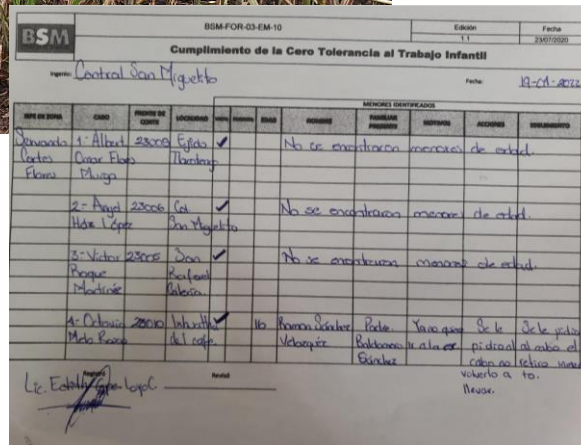 BSM
BSM-FOR-03-EM-10
Edición
1.1
Fecha
23/07/2020
Cumplimiento de la Cero Tolerancia al Trabajo Infantil
Ingenio: Central San Miguelito
Fecha: 19-01-2022
MENORES IDENTIFICADOS
JEFE DE ZONA CABO FRENTE DE CORTE LOCALIDAD EDAD NOMBRE FAMILIAR PRESENTE MOTIVOS ACCIONES SEGUIMIENTO
Servando Cortes Flores
1- Albert Omar Flores 23009 Ejido ✓ No se encontraron menores de edad.
2- Angel Hdz López 23006 Col. San Miguelito ✓ No se encontraron menores de edad.
3- Victor Roque Martínez San Rafael ✓ No se encontraron menores de edad.
4- Octavio Melo 23010 del cafe. ✓ 16 Ramon Sánchez Velazquez Padre. Sánchez Ya no quiere ir a la Se le pidio al cabo no volverlo a llevar. Se le pidio al cabo el retiro
Registró
Revisó
Lic.